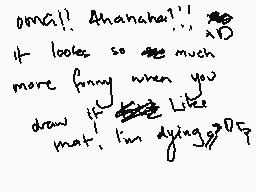 omg!! Ahahaha!!!
xD
it looks so much
more funny when you
draw it like
that! I'm dying